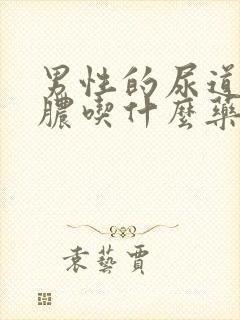 男性的尿道
膿喫什麼藥
袁藝賈